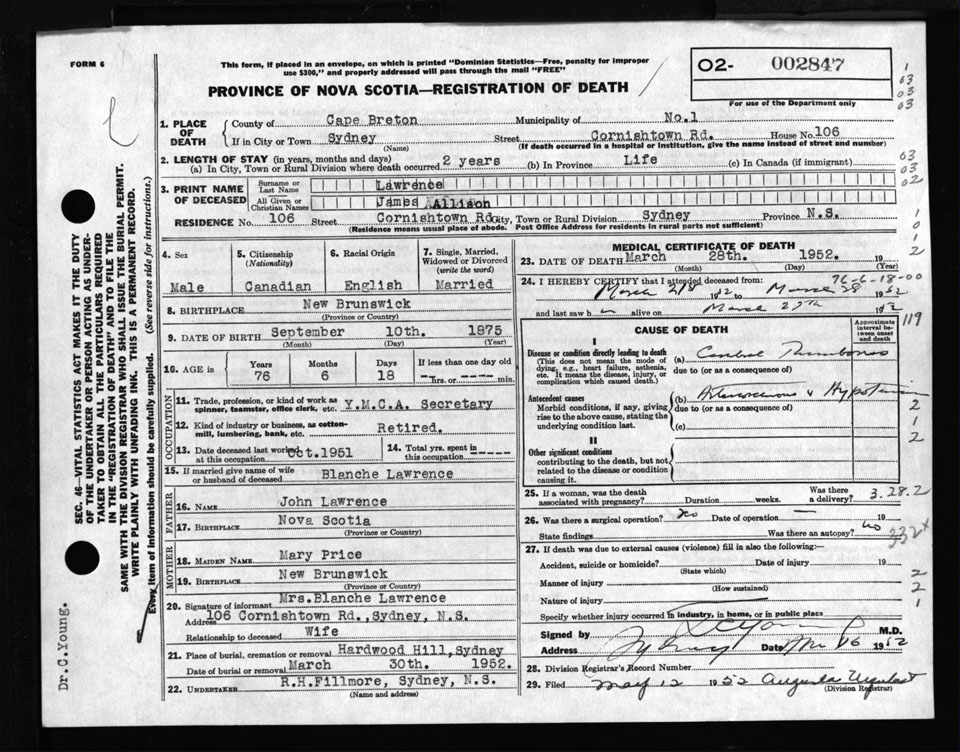 FORM 6
This form, if placed in an envelope, on which is printed "Dominion Statistics—Free, penalty for improper
use $300," and properly addressed will pass through the mail "FREE"
PROVINCE OF NOVA SCOTIA—REGISTRATION OF DEATH
O2- 002847
For use of the Department only
1. PLACE OF DEATH
County of Cape Breton Municipality of No.1
If in City or Town Sydney Street Cornishtown Rd. House No 106
(Name) (If death occurred in a hospital or institution, give the name instead of street and number)
2. LENGTH OF STAY (in years, months and days)
(a) In City, Town or Rural Division where death occurred 2 years (b) In Province Life (c) In Canada (if immigrant)
3. PRINT NAME OF DECEASED
Surname or Last Name Lawrence
All Given or Christian Names James Allison
RESIDENCE No. 106 Street Cornishtown Rd. City, Town or Rural Division Sydney Province N.S.
(Residence means usual place of abode. Post Office Address for residents in rural parts not sufficient)
4. Sex
Male
5. Citizenship (Nationality)
Canadian
6. Racial Origin
English
7. Single, Married, Widowed or Divorced (write the word)
Married
8. BIRTHPLACE New Brunswick
(Province or Country)
9. DATE OF BIRTH September 10th. 1875
(Month) (Day) (Year)
10. AGE in
Years Months Days If less than one day old
76 6 18 hrs. or min.
OCCUPATION
11. Trade, profession, or kind of work as
spinner, teamster, office clerk, etc. Y.M.C.A. Secretary
12. Kind of industry or business, as cotton-
mill, lumbering, bank, etc. Retired.
13. Date deceased last worked
at this occupation Oct.1951
14. Total yrs. spent in
this occupation -----
15. If married give name of wife
or husband of deceased Blanche Lawrence
FATHER
16. NAME John Lawrence
17. BIRTHPLACE Nova Scotia
(Province or Country)
MOTHER
18. MAIDEN NAME Mary Price
19. BIRTHPLACE New Brunswick
(Province or Country)
20. Signature of informant Mrs.Blanche Lawrence
Address 106 Cornishtown Rd.,Sydney, N.S.
Relationship to deceased Wife
21. Place of burial, cremation or removal Hardwood Hill,Sydney
Date of burial or removal March 30th. 1952.
22. UNDERTAKER R.H.Fillmore, Sydney, N.S.
(Name and address)
MEDICAL CERTIFICATE OF DEATH
23. DATE OF DEATH March 28th. 1952. 19
(Month) (Day) (Year)
76-6-18-00
24. I HEREBY CERTIFY that I attended deceased from:
March 21st 1952 to March 28 1952
and last saw h m alive on March 27th 1952
119
CAUSE OF DEATH
Approximate interval between onset and death
I
Disease or condition directly leading to death
(This does not mean the mode of
dying, e.g., heart failure, asthenia,
etc. It means the disease, injury, or
complication which caused death.)
(a) Cerebral Thrombosis
due to (or as a consequence of)
Antecedent causes
Morbid conditions, if any, giving
rise to the above cause, stating the
underlying condition last.
(b)
due to (or as a consequence of)
(c)
II
Other significant conditions
contributing to the death, but not
related to the disease or condition
causing it.
25. If a woman, was the death
associated with pregnancy? Duration weeks. Was there
a delivery? 3.28.2
26. Was there a surgical operation? No Date of operation — 19
State findings Was there an autopsy? No
332x
27. If death was due to external causes (violence) fill in also the following:—
Accident, suicide or homicide? Date of injury 19
(State which)
Manner of injury
(How sustained)
Nature of injury
Specify whether injury occurred in industry, in home, or in public place
Signed by M.D.
Address Sydney Date 1952
28. Division Registrar's Record Number
29. Filed May 12 1952 Augusta
(Division Registrar)
SEC. 46—VITAL STATISTICS ACT MAKES IT THE DUTY
OF THE UNDERTAKER OR PERSON ACTING AS UNDER-
TAKER TO OBTAIN ALL THE PARTICULARS REQUIRED
IN THE "REGISTRATION OF DEATH" AND TO FILE THE
SAME WITH THE DIVISION REGISTRAR WHO SHALL ISSUE THE BURIAL PERMIT.
WRITE PLAINLY WITH UNFADING INK. THIS IS A PERMANENT RECORD.
Every item of Information should be carefully supplied. (See reverse side for instructions.)
Dr.C.Young.
1
63
03
03
63
03
02
1
0
1
2
2
1
2
2
2
1